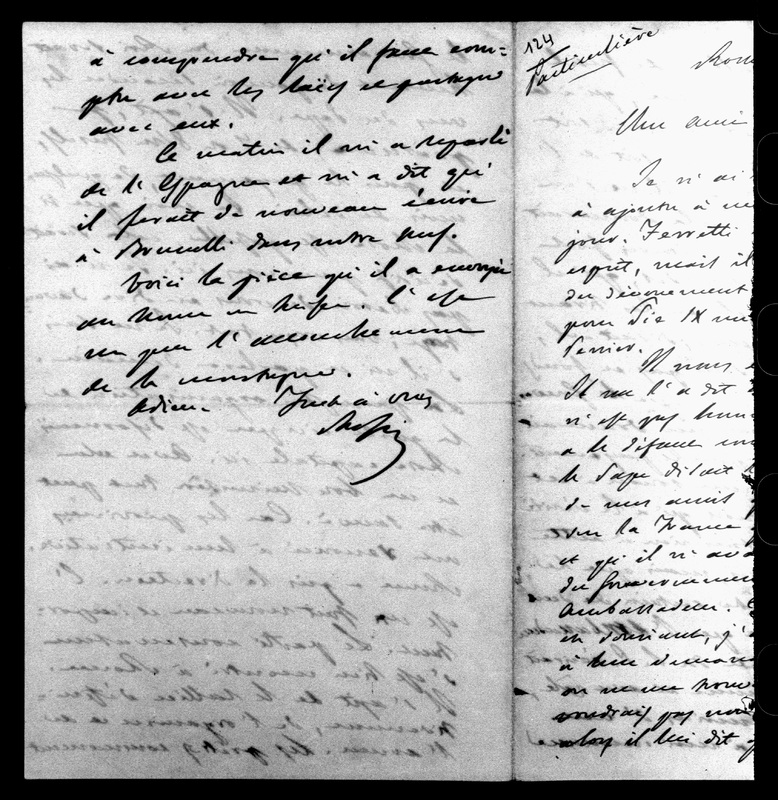 à comprendre qu'il faut com=
pter avec les laïcs et partager
avec eux.
Ce matin il m'a reparlé
de l'Espagne et m'a dit qu'
il ferait de nouveau écrire
à Brunelli dans notre sens.
Voici la pièce qu'il a envoyée
au Nonce en Suisse. C'est
un peu l'accouchement
de la montagne.
Adieu. Tout à vous
Rossi
124
Particulière
Rom
Mon ami
Je n'ai
à ajouter à
jour. Ferretti
esprit, mais il
du dévouement
pour Pie IX
dernier.
Il nous
Il me l'a dit
n'est pas
a le défaut
le Pape disait
de mes amis
sur la France
et qu'il n'av
du Gouvernemen
Ambassadeur.
en souriant, j'
à leur deman
on ne me
voudrais pas
alors il lui dit